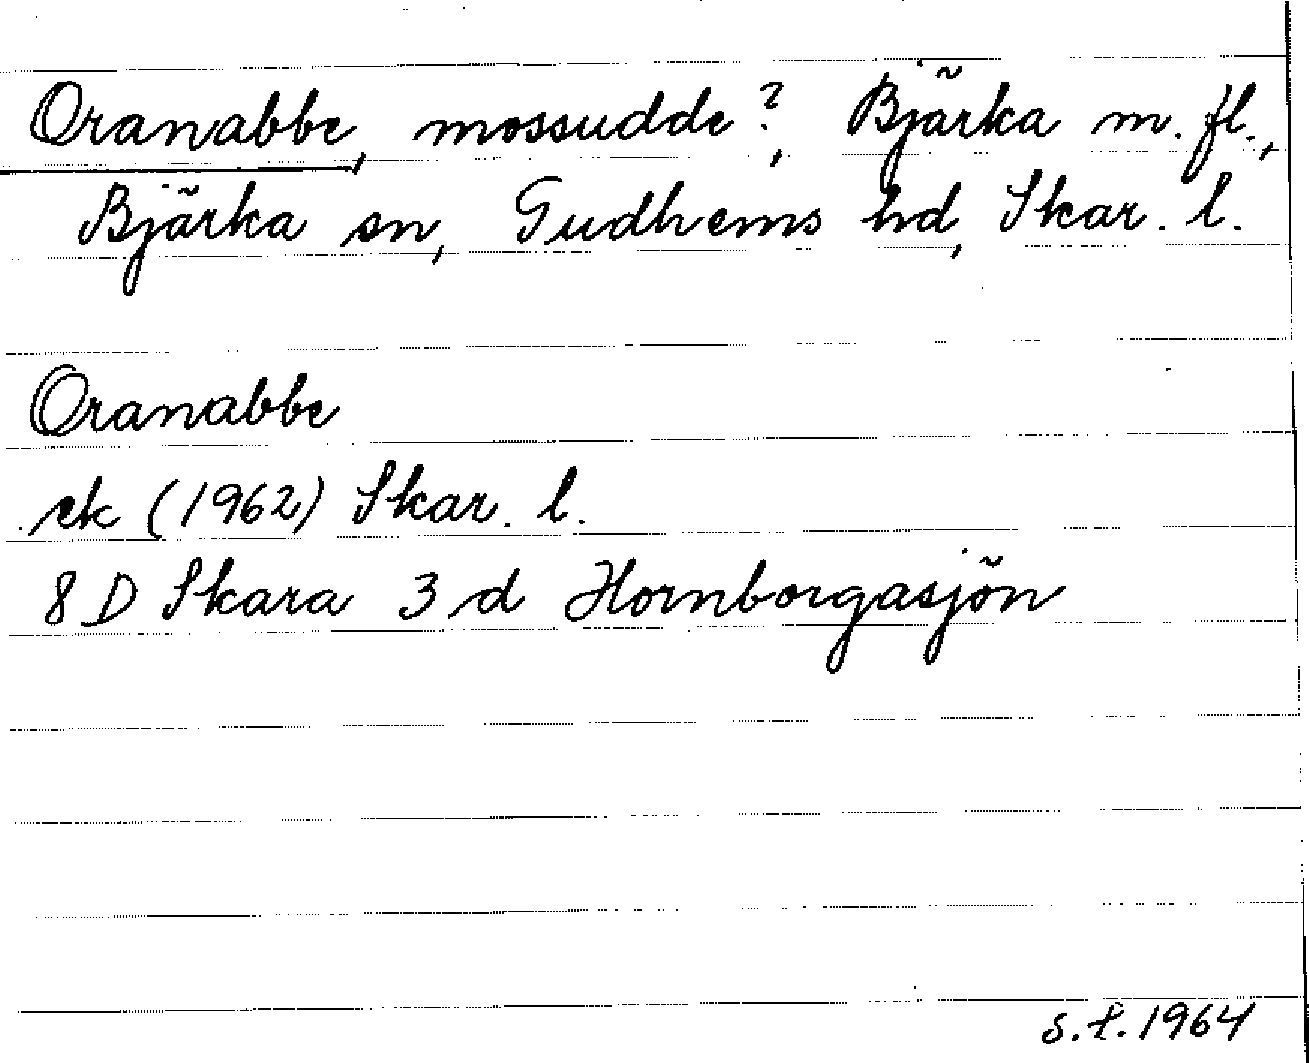 Oranabbe, mossudde?, Bjärka m. fl.,
Bjärka sn, Gudhems hd, Skar. l.
Oranabbe
ek (1962) Skar. l.
8 D Skara 3 d Hornborgasjön
S.F. 1964